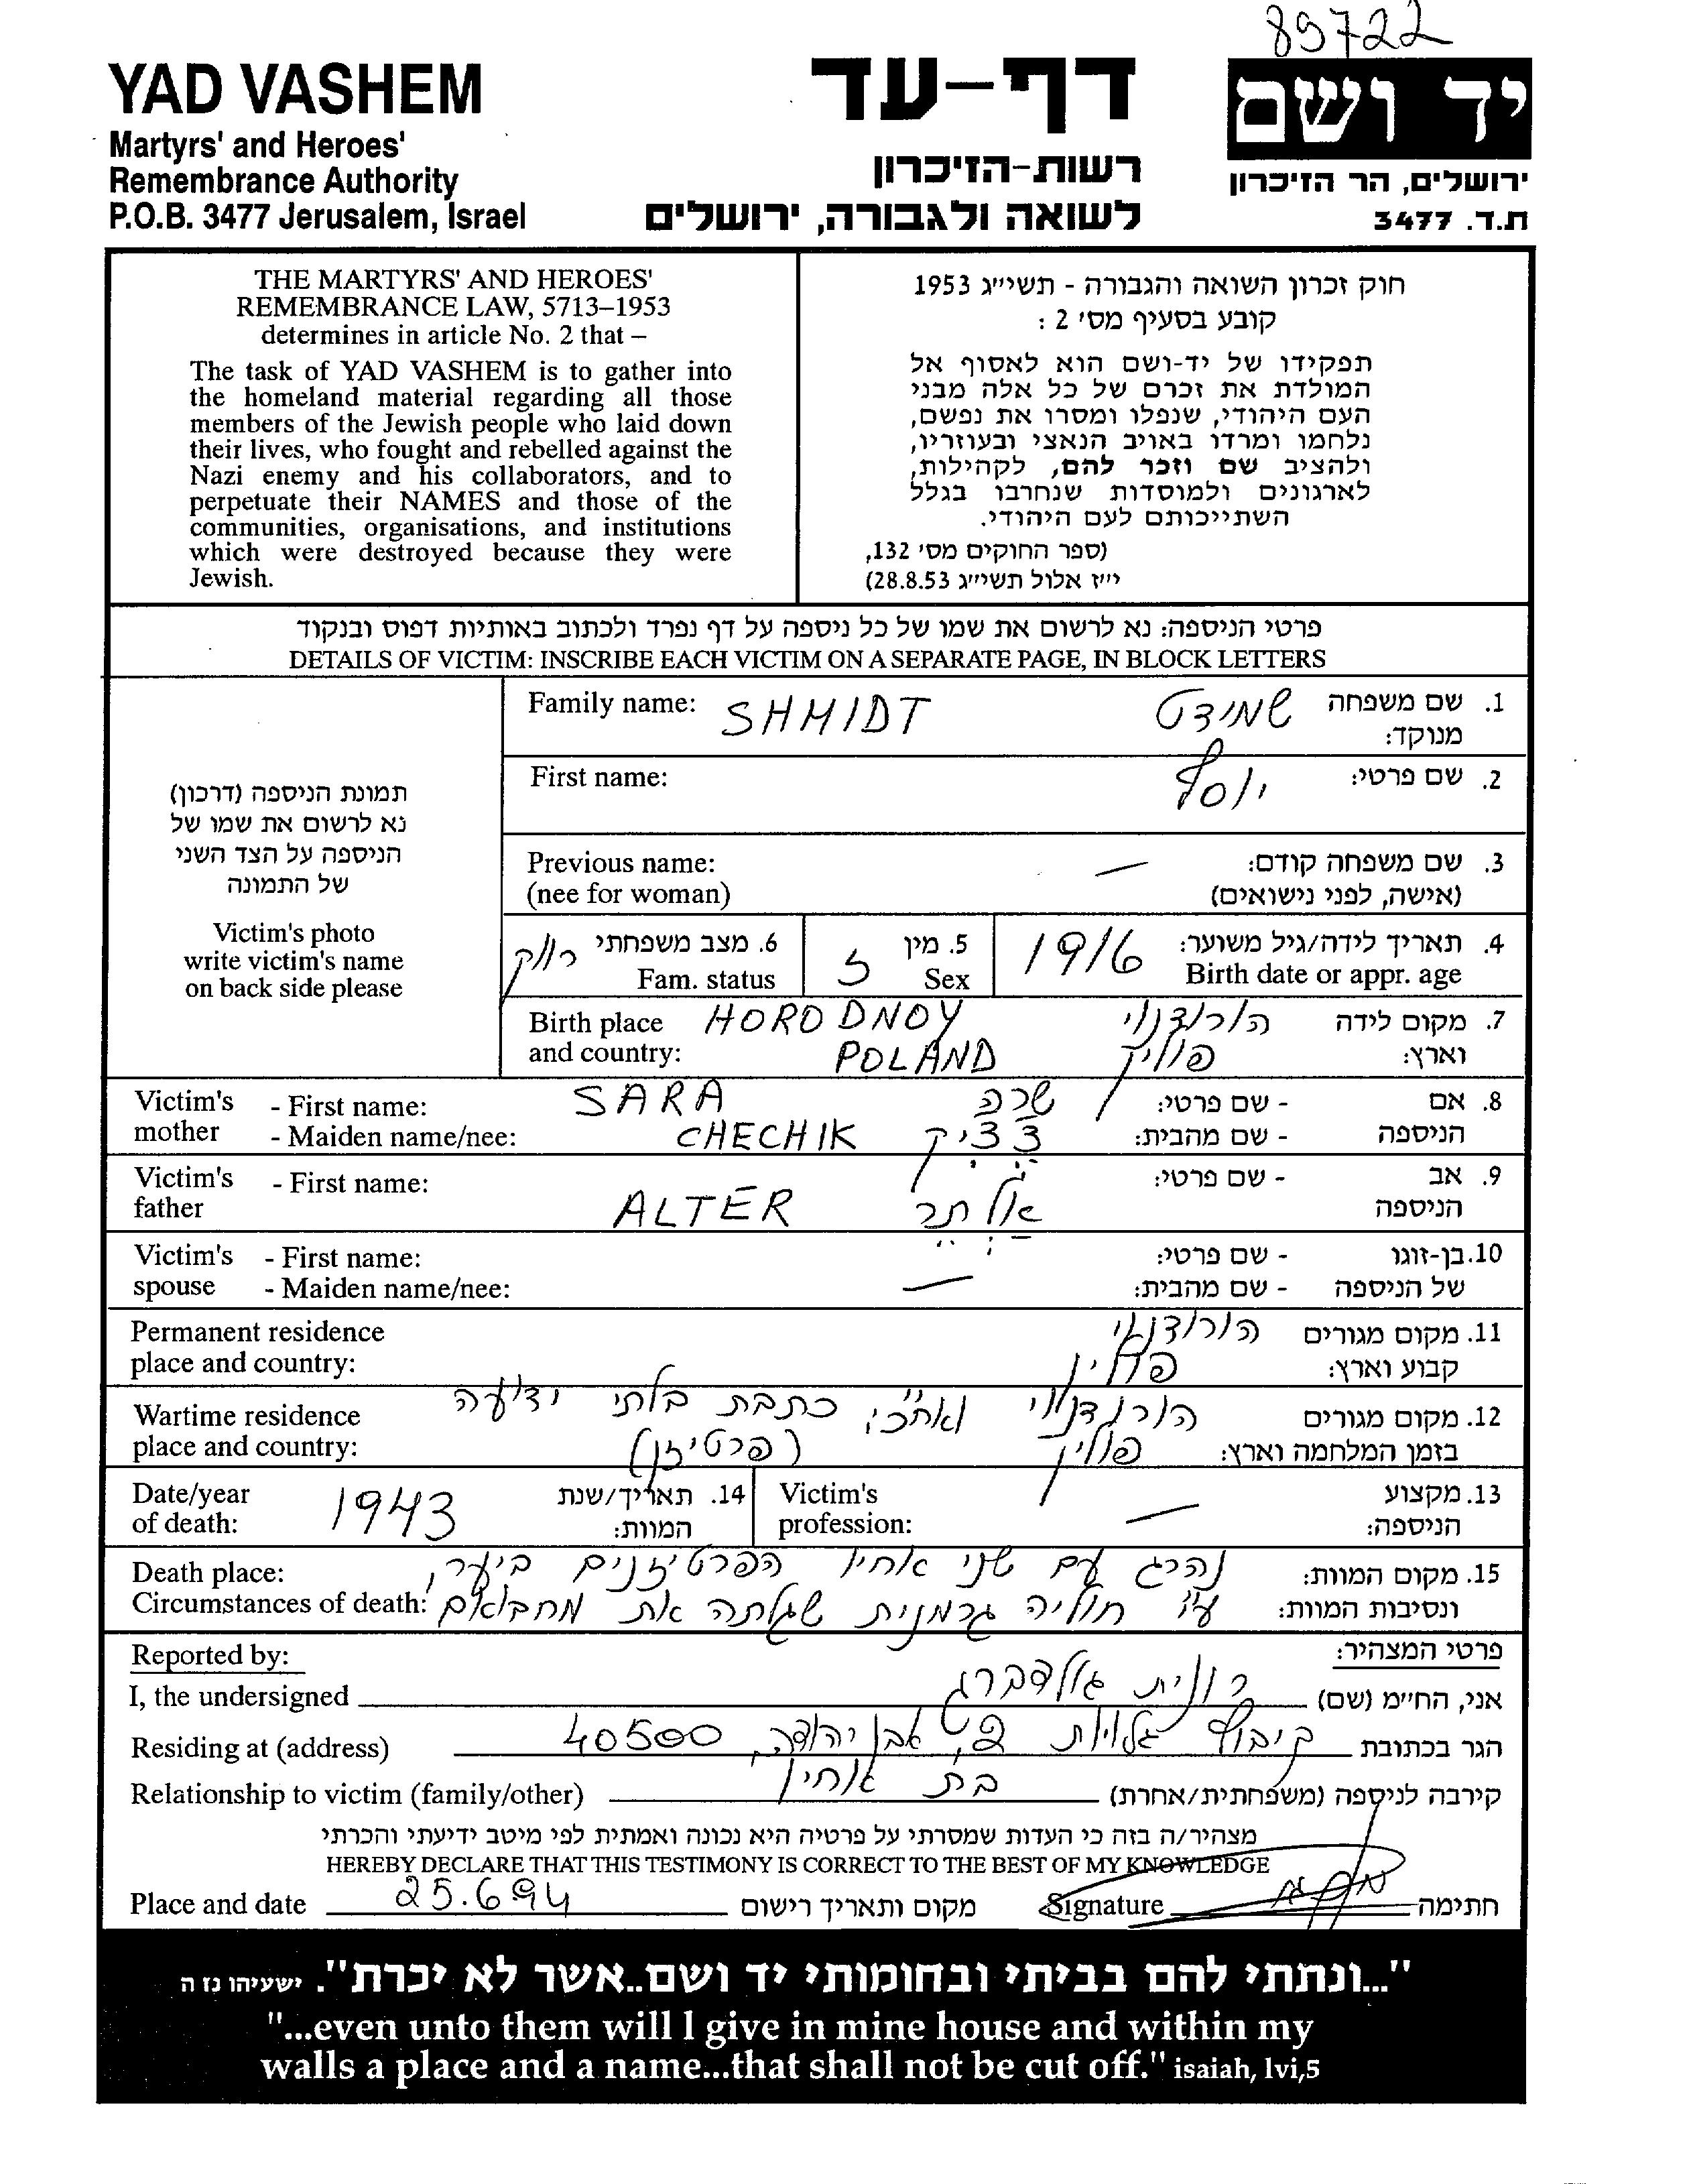 89722
YAD VASHEM
Martyrs' and Heroes'
Remembrance Authority
P.O.B. 3477 Jerusalem, Israel
דף-עד
רשות-הזיכרון
לשואה ולגבורה, ירושלים
יד ושם
ירושלים, הר הזיכרון
ת.ד. 3477
THE MARTYRS' AND HEROES'
REMEMBRANCE LAW, 5713–1953
determines in article No. 2 that –
The task of YAD VASHEM is to gather into
the homeland material regarding all those
members of the Jewish people who laid down
their lives, who fought and rebelled against the
Nazi enemy and his collaborators, and to
perpetuate their NAMES and those of the
communities, organisations, and institutions
which were destroyed because they were
Jewish.
חוק זכרון השואה והגבורה - תשי״ג 1953
קובע בסעיף מס׳ 2 :
תפקידו של יד-ושם הוא לאסוף אל
המולדת את זכרם של כל אלה מבני
העם היהודי, שנפלו ומסרו את נפשם,
נלחמו ומרדו באויב הנאצי ובעוזריו,
ולהציב שם וזכר להם, לקהילות,
לארגונים ולמוסדות שנחרבו בגלל
השתייכותם לעם היהודי.
(ספר החוקים מס׳ 132,
י״ז אלול תשי״ג 28.8.53)
פרטי הניספה: נא לרשום את שמו של כל ניספה על דף נפרד ולכתוב באותיות דפוס ובנקוד
DETAILS OF VICTIM: INSCRIBE EACH VICTIM ON A SEPARATE PAGE, IN BLOCK LETTERS
תמונת הניספה (דרכון)
נא לרשום את שמו של
הניספה על הצד השני
של התמונה
Victim's photo
write victim's name
on back side please
Family name: SHMIDT שמידט 1. שם משפחה
מנוקד:
First name: יוסף 2. שם פרטי:
Previous name: — 3. שם משפחה קודם:
(nee for woman) (אישה, לפני נישואים)
רווק 6. מצב משפחתי 5. מין 1916 4. תאריך לידה/גיל משוער:
Fam. status ז Sex Birth date or appr. age
Birth place HORODNOY הורודנוי 7. מקום לידה
and country: POLAND פולין וארץ:
Victim's - First name: SARA שרה - שם פרטי: 8. אם
mother - Maiden name/nee: CHECHIK צ'צ'יק - שם מהבית: הניספה
Victim's - First name: - שם פרטי: 9. אב
father ALTER אלתר הניספה
Victim's - First name: - שם פרטי: 10. בן-זוגו
spouse - Maiden name/nee: — - שם מהבית: של הניספה
Permanent residence הורודנוי 11. מקום מגורים
place and country: פולין קבוע וארץ:
Wartime residence הורודנוי ואח"כ: כתבת בלתי ידועה 12. מקום מגורים
place and country: פולין (פרטיזן) בזמן המלחמה וארץ:
Date/year 1943 14. תאריך/שנת Victim's — 13. מקצוע
of death: המוות: profession: הניספה:
Death place: נהרג עם שני אחיו הפרטיזנים ביער, 15. מקום המוות:
Circumstances of death: ע"י חוליה גרמנית שגלתה את מחבואם ונסיבות המוות:
Reported by: פרטי המצהיר:
I, the undersigned רונית גולדברג אני, החי״מ (שם)
Residing at (address) קיבוץ גלויות אבן יהודה, 40500 הגר בכתובת
Relationship to victim (family/other) בת אחיו קירבה לניספה (משפחתית/אחרת)
מצהיר/ה בזה כי העדות שמסרתי על פרטיה היא נכונה ואמתית לפי מיטב ידיעתי והכרתי
HEREBY DECLARE THAT THIS TESTIMONY IS CORRECT TO THE BEST OF MY KNOWLEDGE
Place and date 25.6.94 מקום ותאריך רישום Signature חתימה
"...ונתתי להם בביתי ובחומותי יד ושם..אשר לא יכרת". ישעיהו נז ה
"...even unto them will I give in mine house and within my
walls a place and a name...that shall not be cut off." isaiah, lvi,5